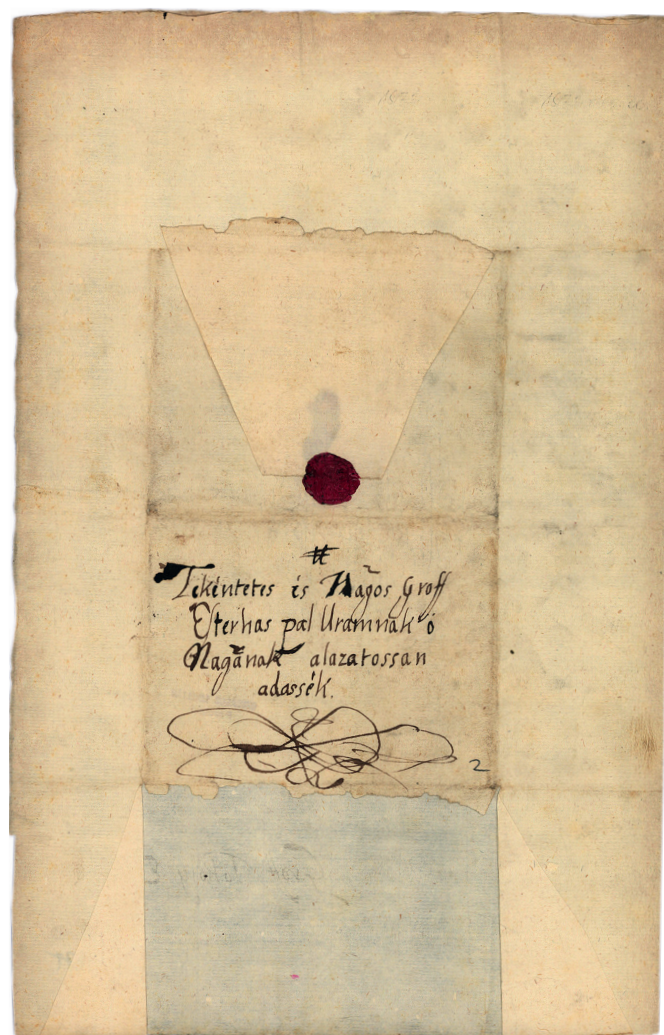 Tekéntetes és Nagos Groff
Esterhas pal Uramnak ö
Nagänak alazatossan
adassék.
2